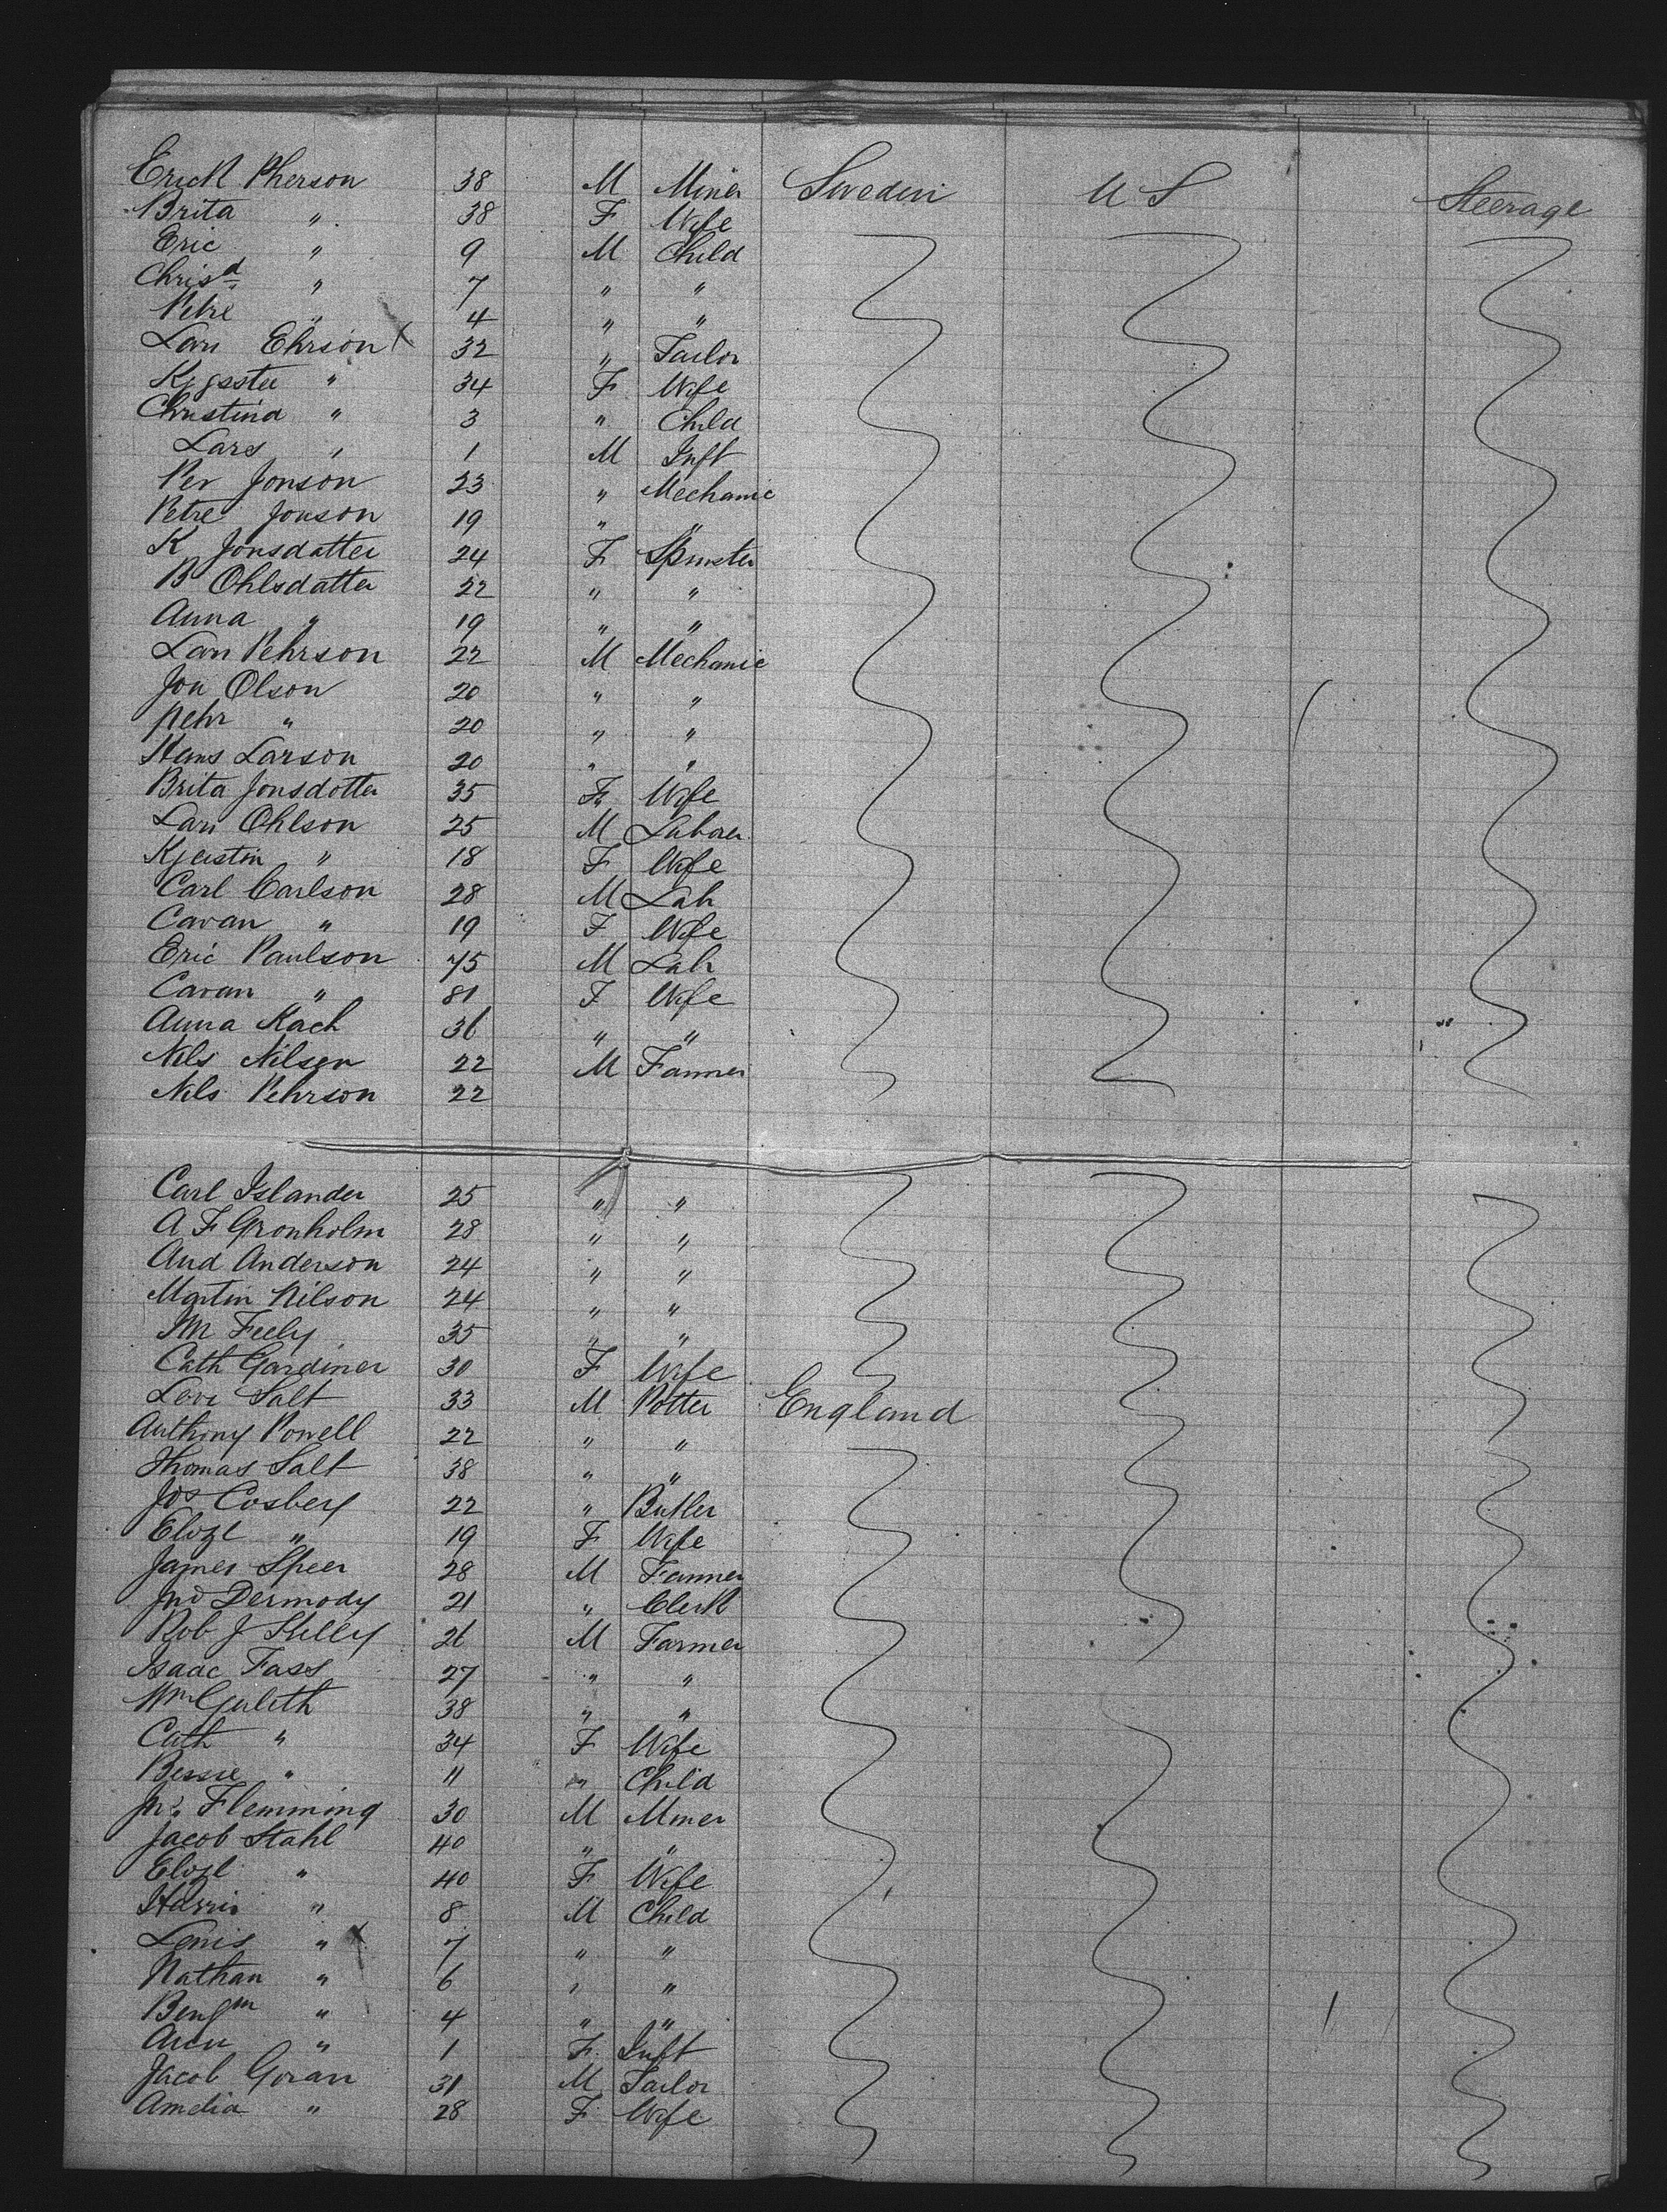 Erick Pherson 38 M Miner Sweden U S Steerage
Brita " 38 F Wife
Eric " 9 M Child
Chrisd " 7 " "
Petre " 4 " "
Lars Ehrson 32 " Tailor
" 34 F Wife
Christina " 3 " Child
Lars " 1 M Inft
Per Jonson 23 " Mechanic
Petre Jonson 19 " "
K Jonsdatter 24 F Spinster
B Ohlsdatter 22 " "
Anna " 19 " "
Lars Pehrson 22 M Mechanic
Jon Olson 20 " "
Pehr " 20 " "
Hans Larson 20 " "
Brita Jonsdotter 35 F Wife
Lars Ohlson 25 M Laborer
Kjerstin " 18 F Wife
Carl Carlson 28 M Lab
Caran " 19 F Wife
Eric Paulson 75 M Lab
Caran " 81 F Wife
Anna Kach 36 " "
Nils Nilsen 22 M Farmer
Nils Pehrson 22
Carl Islander 25 " "
A F Gronholm 28 " "
And Anderson 24 " "
Martin Nilson 24 " "
M Feely 35 " "
Cath Gardiner 30 F Wife
Levi Salt 33 M Potter England
Anthony Powell 22 " "
Thomas Salt 38 " "
Jos Cosbery 22 " Butler
Elizt " 19 F Wife
James Speer 28 M Farmer
Jno Dermody 21 " Clerk
Rob J Kelly 26 M Farmer
Isaac Fass 27 " "
Wm 38 " "
Cath " 34 F Wife
Bessie " 11 " Child
Jno Flemming 30 M Miner
Jacob Stahl 40 " "
Elizt " 40 F Wife
Harris " 8 M Child
Lewis " 7 " "
Nathan " 6 " "
Benjm " 4 " "
" 1 F Inft
Jacob Goran 31 M Tailor
Amelia " 28 F Wife